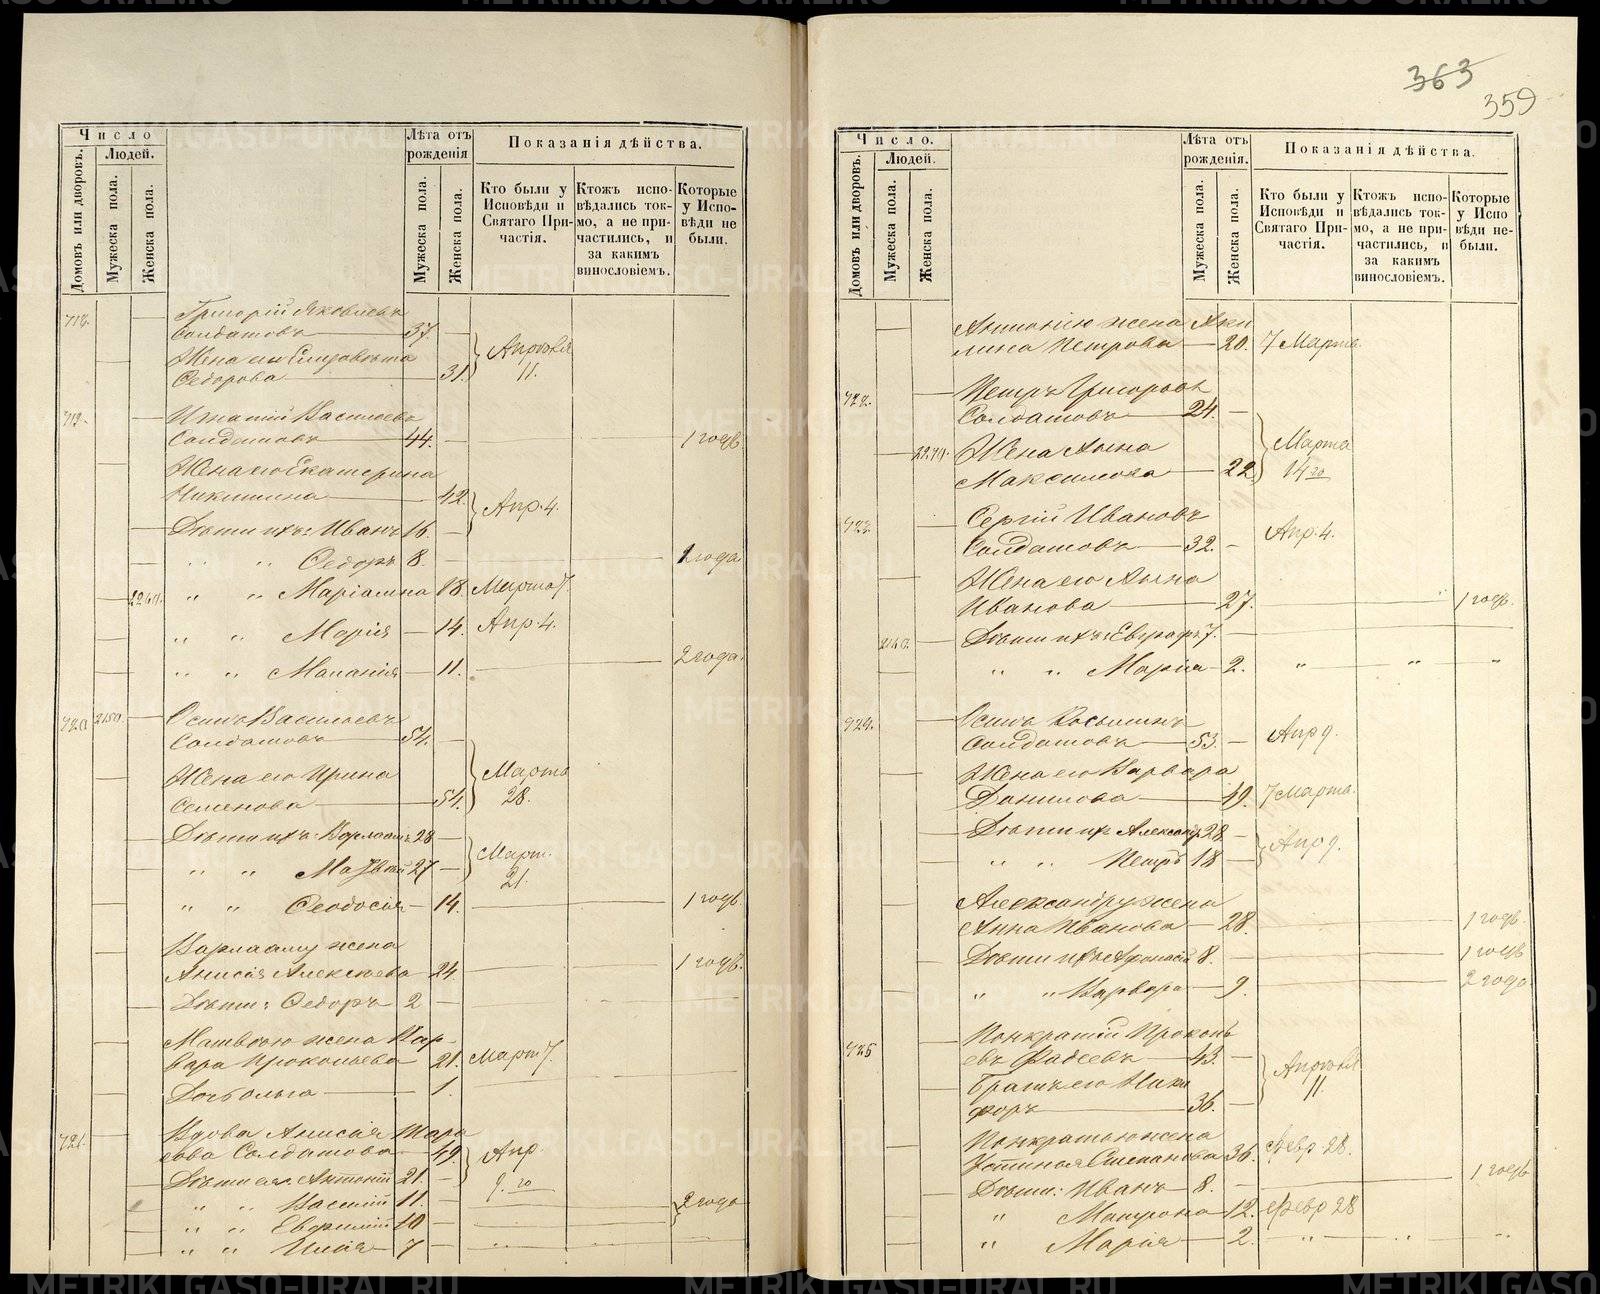 363
359
Число
Людей.
Домовъ или дворовъ.
Мужеска пола.
Женска пола.
Лѣта отъ
рожденія
Мужеска пола.
Женска пола.
Показанія дѣйства.
Кто были у
Исповѣди и
Святаго При-
частія.
Ктожъ испо-
вѣдались ток-
мо, а не при-
частились, и
за какимъ
винословіемъ.
Которые
у Испо-
вѣди не
были.
718. Григорій Яковлевъ
Солдатовъ 37. Апрѣля
Жена его Елизавета
Федорова 31. 11.
719. Игнатій Васильевъ
Солдатовъ 44. 1 годъ.
Жена его Екатерина
Никитина 42. Апр. 4.
Дѣти ихъ: Иванъ 16.
„ „ Федоръ 8. 2 года
„ „ Маріамна 18. Марта 7.
„ „ Марія 14. Апр. 4.
„ „ Маланія 11. 2 года.
720 2150. Осипъ Васильевъ
Солдатовъ 54.
Жена его Ирина Марта
Семенова 54. 28.
Дѣти ихъ: Варлаамъ 28 Март.
„ „ Матвѣй 27 21.
„ „ Феодосія 14. 1 годъ.
Варлааму жена
Анисія Алексѣева 24 1 годъ.
Дѣти: Федоръ 2
Матвѣю жена Вар-
вара Прокопьева 21. Март 7.
Дочь Ольга 1.
721. Вдова Анисія Тара
сова Солдатова 49. Апр.
Дѣти ея: Антоній 21. 9.го
„ „ Василій 11. 2 года
„ „ Евфимій 10
„ „ Илія 7
Число.
Людей.
Домовъ или дворовъ.
Мужеска пола.
Женска пола.
Лѣта отъ
рожденія.
Мужеска пола.
Женска пола.
Показанія дѣйства.
Кто были у
Исповѣди и
Святаго При-
частія.
Ктожъ испо-
вѣдались ток-
мо, а не при-
частились, и
за какимъ
винословіемъ.
Которые
у Испо
вѣди не-
были.
Антонію жена Аки
лина Петрова 20. 7 Марта.
722. Петръ Григорьевъ
Солдатовъ 24.
Жена Анна Марта
Максимова 22. 14го
723. Сергій Ивановъ
Солдатовъ 32. Апр. 4.
Жена его Анна
Иванова 27. 1 годъ.
Дѣти ихъ: Евграфъ 7.
„ „ Марія 2. „ „ „
724. Осипъ Косьминъ
Солдатовъ 53. Апр 9.
Жена его Варвара
Данилова 49. 7 Марта.
Дѣти ихъ Александръ 28
„ „ Петръ 18 Апр 9.
Александру жена
Анна Иванова 28. 1 годъ.
Дѣти ихъ Афонасій 8. 1 годъ
„ „ Варвара 9. 2 года.
725 Понкратій Прокопь
евъ Фадеевъ 43. Апрѣля
Братъ его Ники
форъ 36. 11.
Понкратью жена
Устинья Степанова 36. Февр 28.
Дѣти: Иванъ 8. 1 годъ
„ Матрона 12. Февр 28
„ Марія 2. „ „ „
METRIKI.GASO-URAL.RU